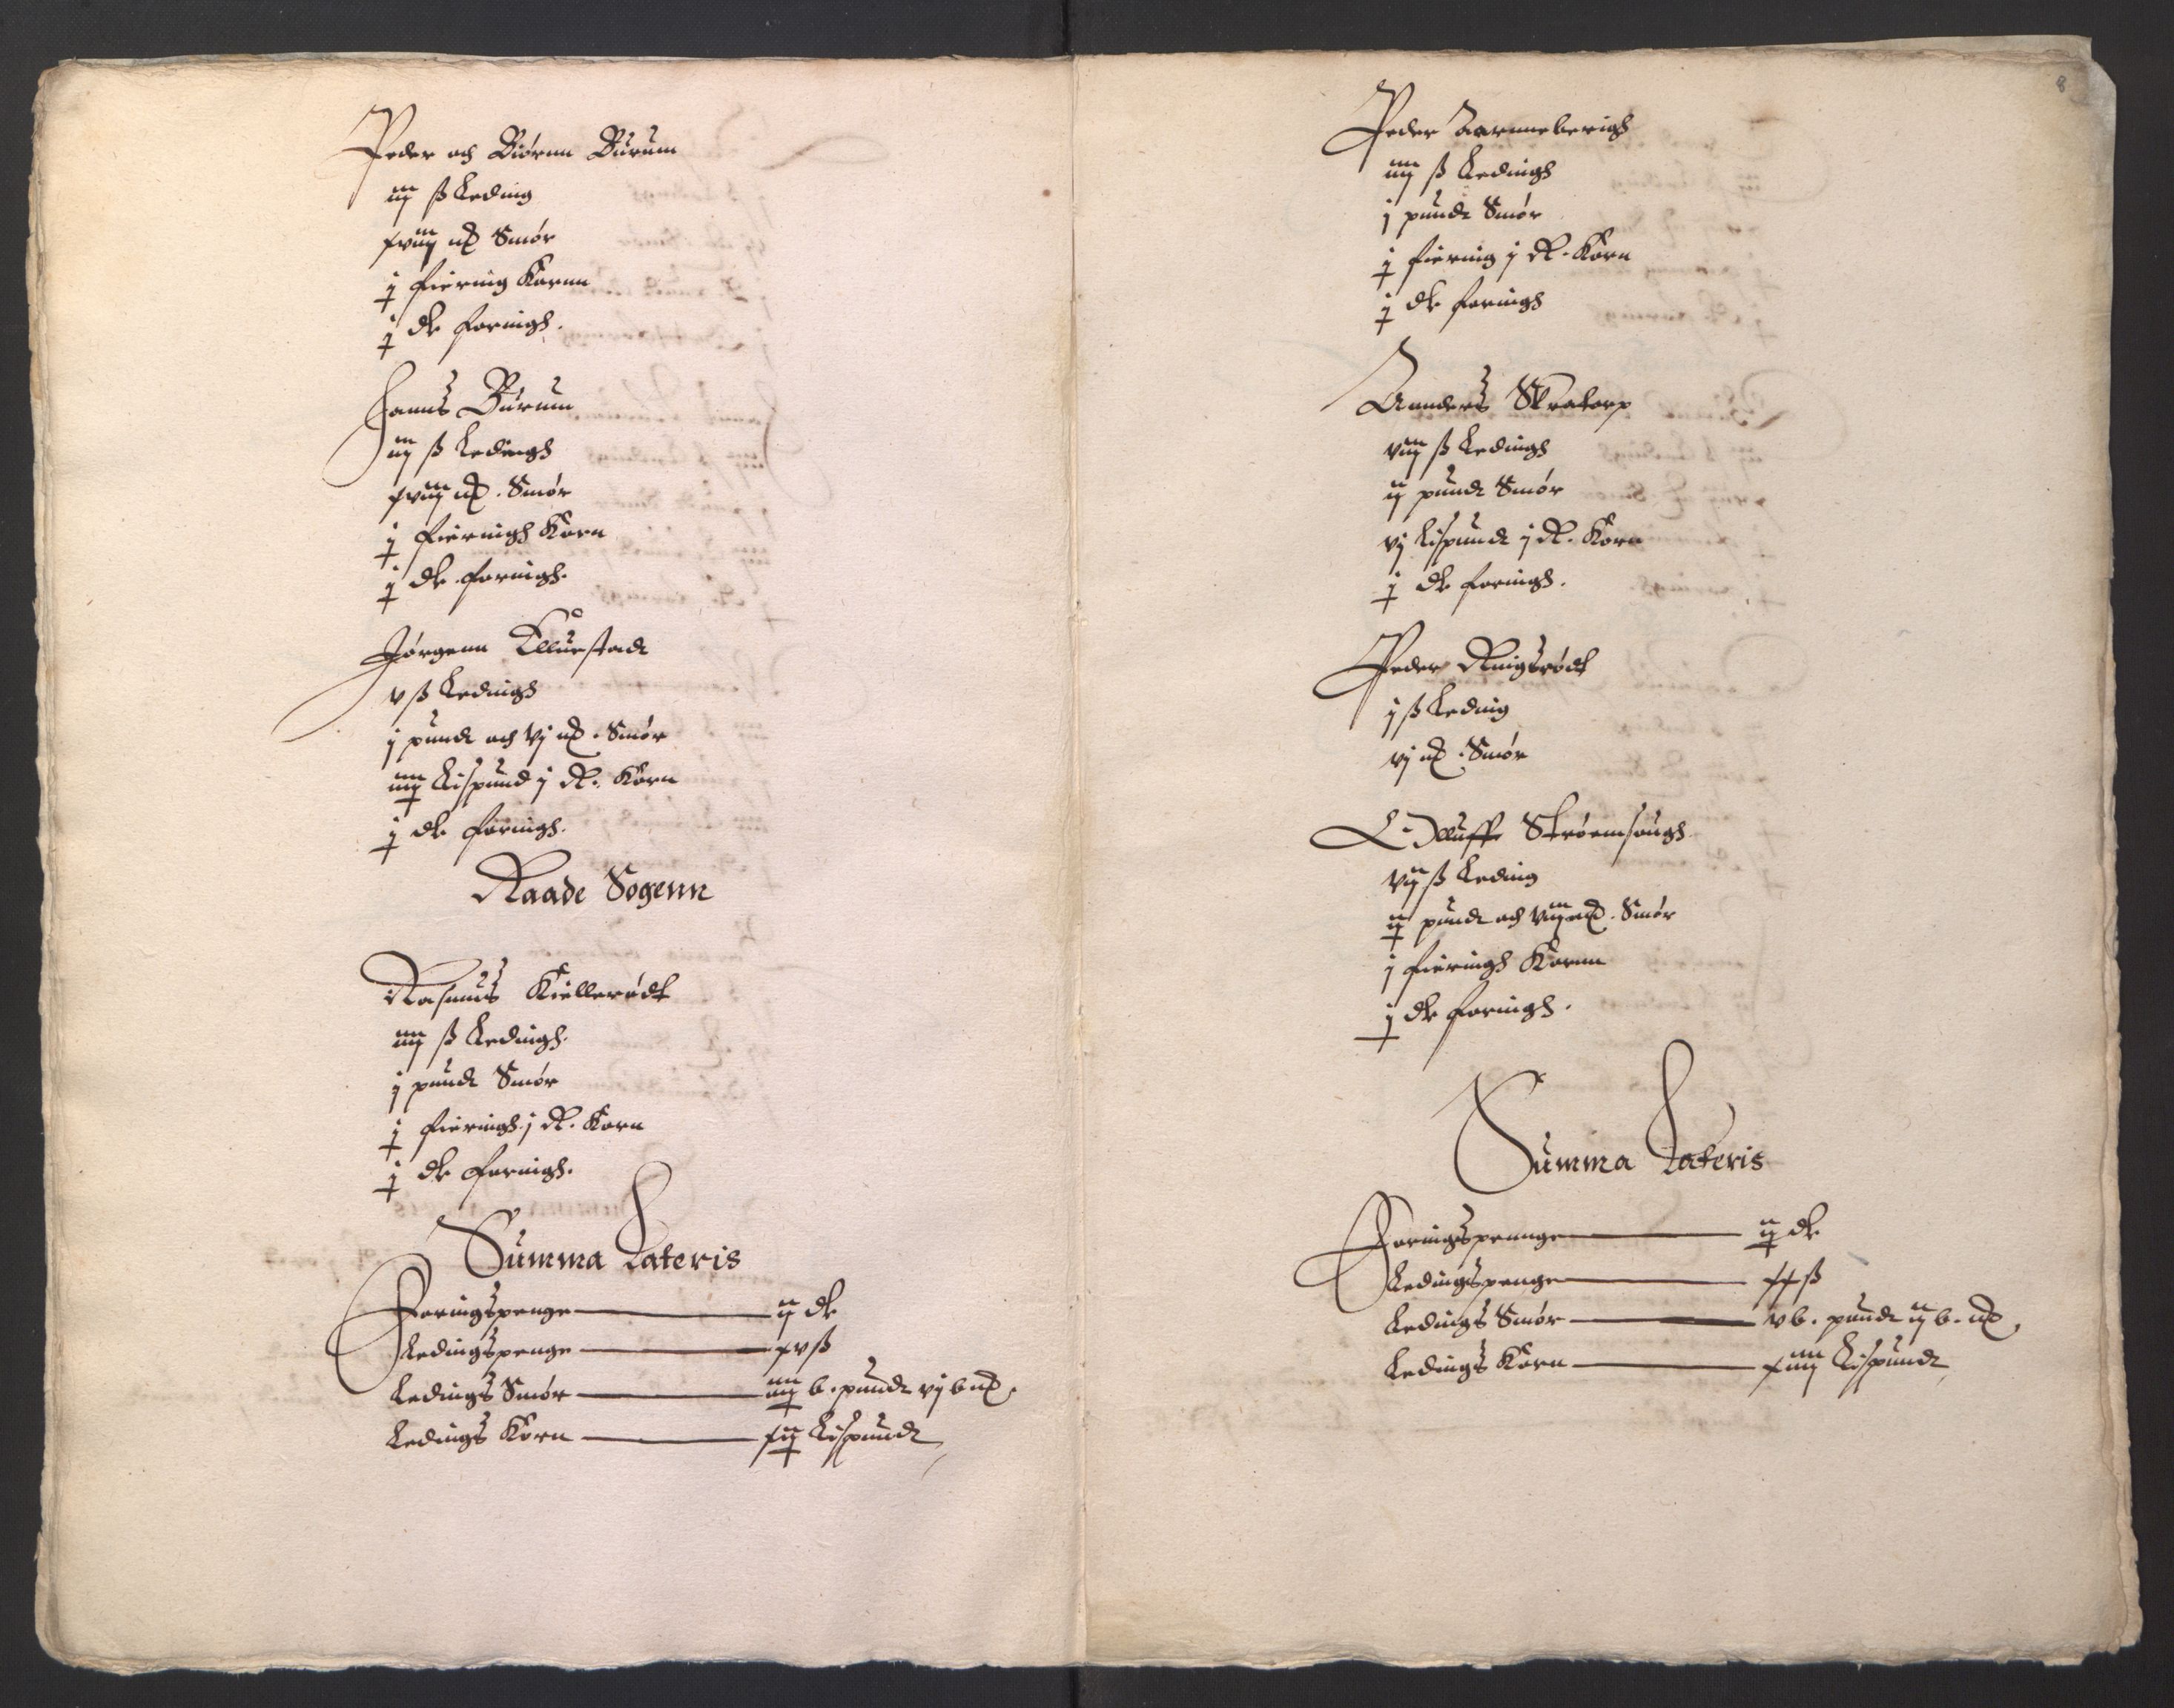 Peder och Biörnn Burum
iij ß Leding
xviij mꝶ Smör
j fiering Kornn
j dlr foringh.
Hanns Burum
iij ß Ledingh
xviij mꝶ. Smör
j fieringh Korn
j dlr foringh.
Jörgenn
v ß Ledingh
j pundt och vj mꝶ. Smör
iiij Lispund j R. Korn
j dlr foringh.
Raade Sogenn
Rasmus Kiellerödt
iiij ß Ledingh.
j pundt Smör
j fieringh j R. Korn
j dlr foringh.
Summa Lateris
Foringspenge ij dlr
Ledingspenge xv ß
Ledings Smör iiij b. pundt vj b mꝶ.
Ledings Korn xij Lispundt
8
Peder Aarnneberigh
iiij ß Ledingh
j pundt Smör
j fiering j R. Korn
j dlr foringh
Aanders Skratorp
viij ß Ledingh
ij pundt Smör
vj Lispundt j R. Korn
j dlr foringh.
Peder Ringsrödt
j ß Leding
vj mꝶ. Smör
Olluff Strömsough
vij ß Leding
ij pundt och viij mꝶ. Smör
j fieringh Kornn
j dlr foringh.
Summa Lateris
Foringspennge ij dlr
Ledingspenge xx ß
Ledings Smör v b. pundt ij b. mꝶ.
Ledings Korn xiiij Lispundt